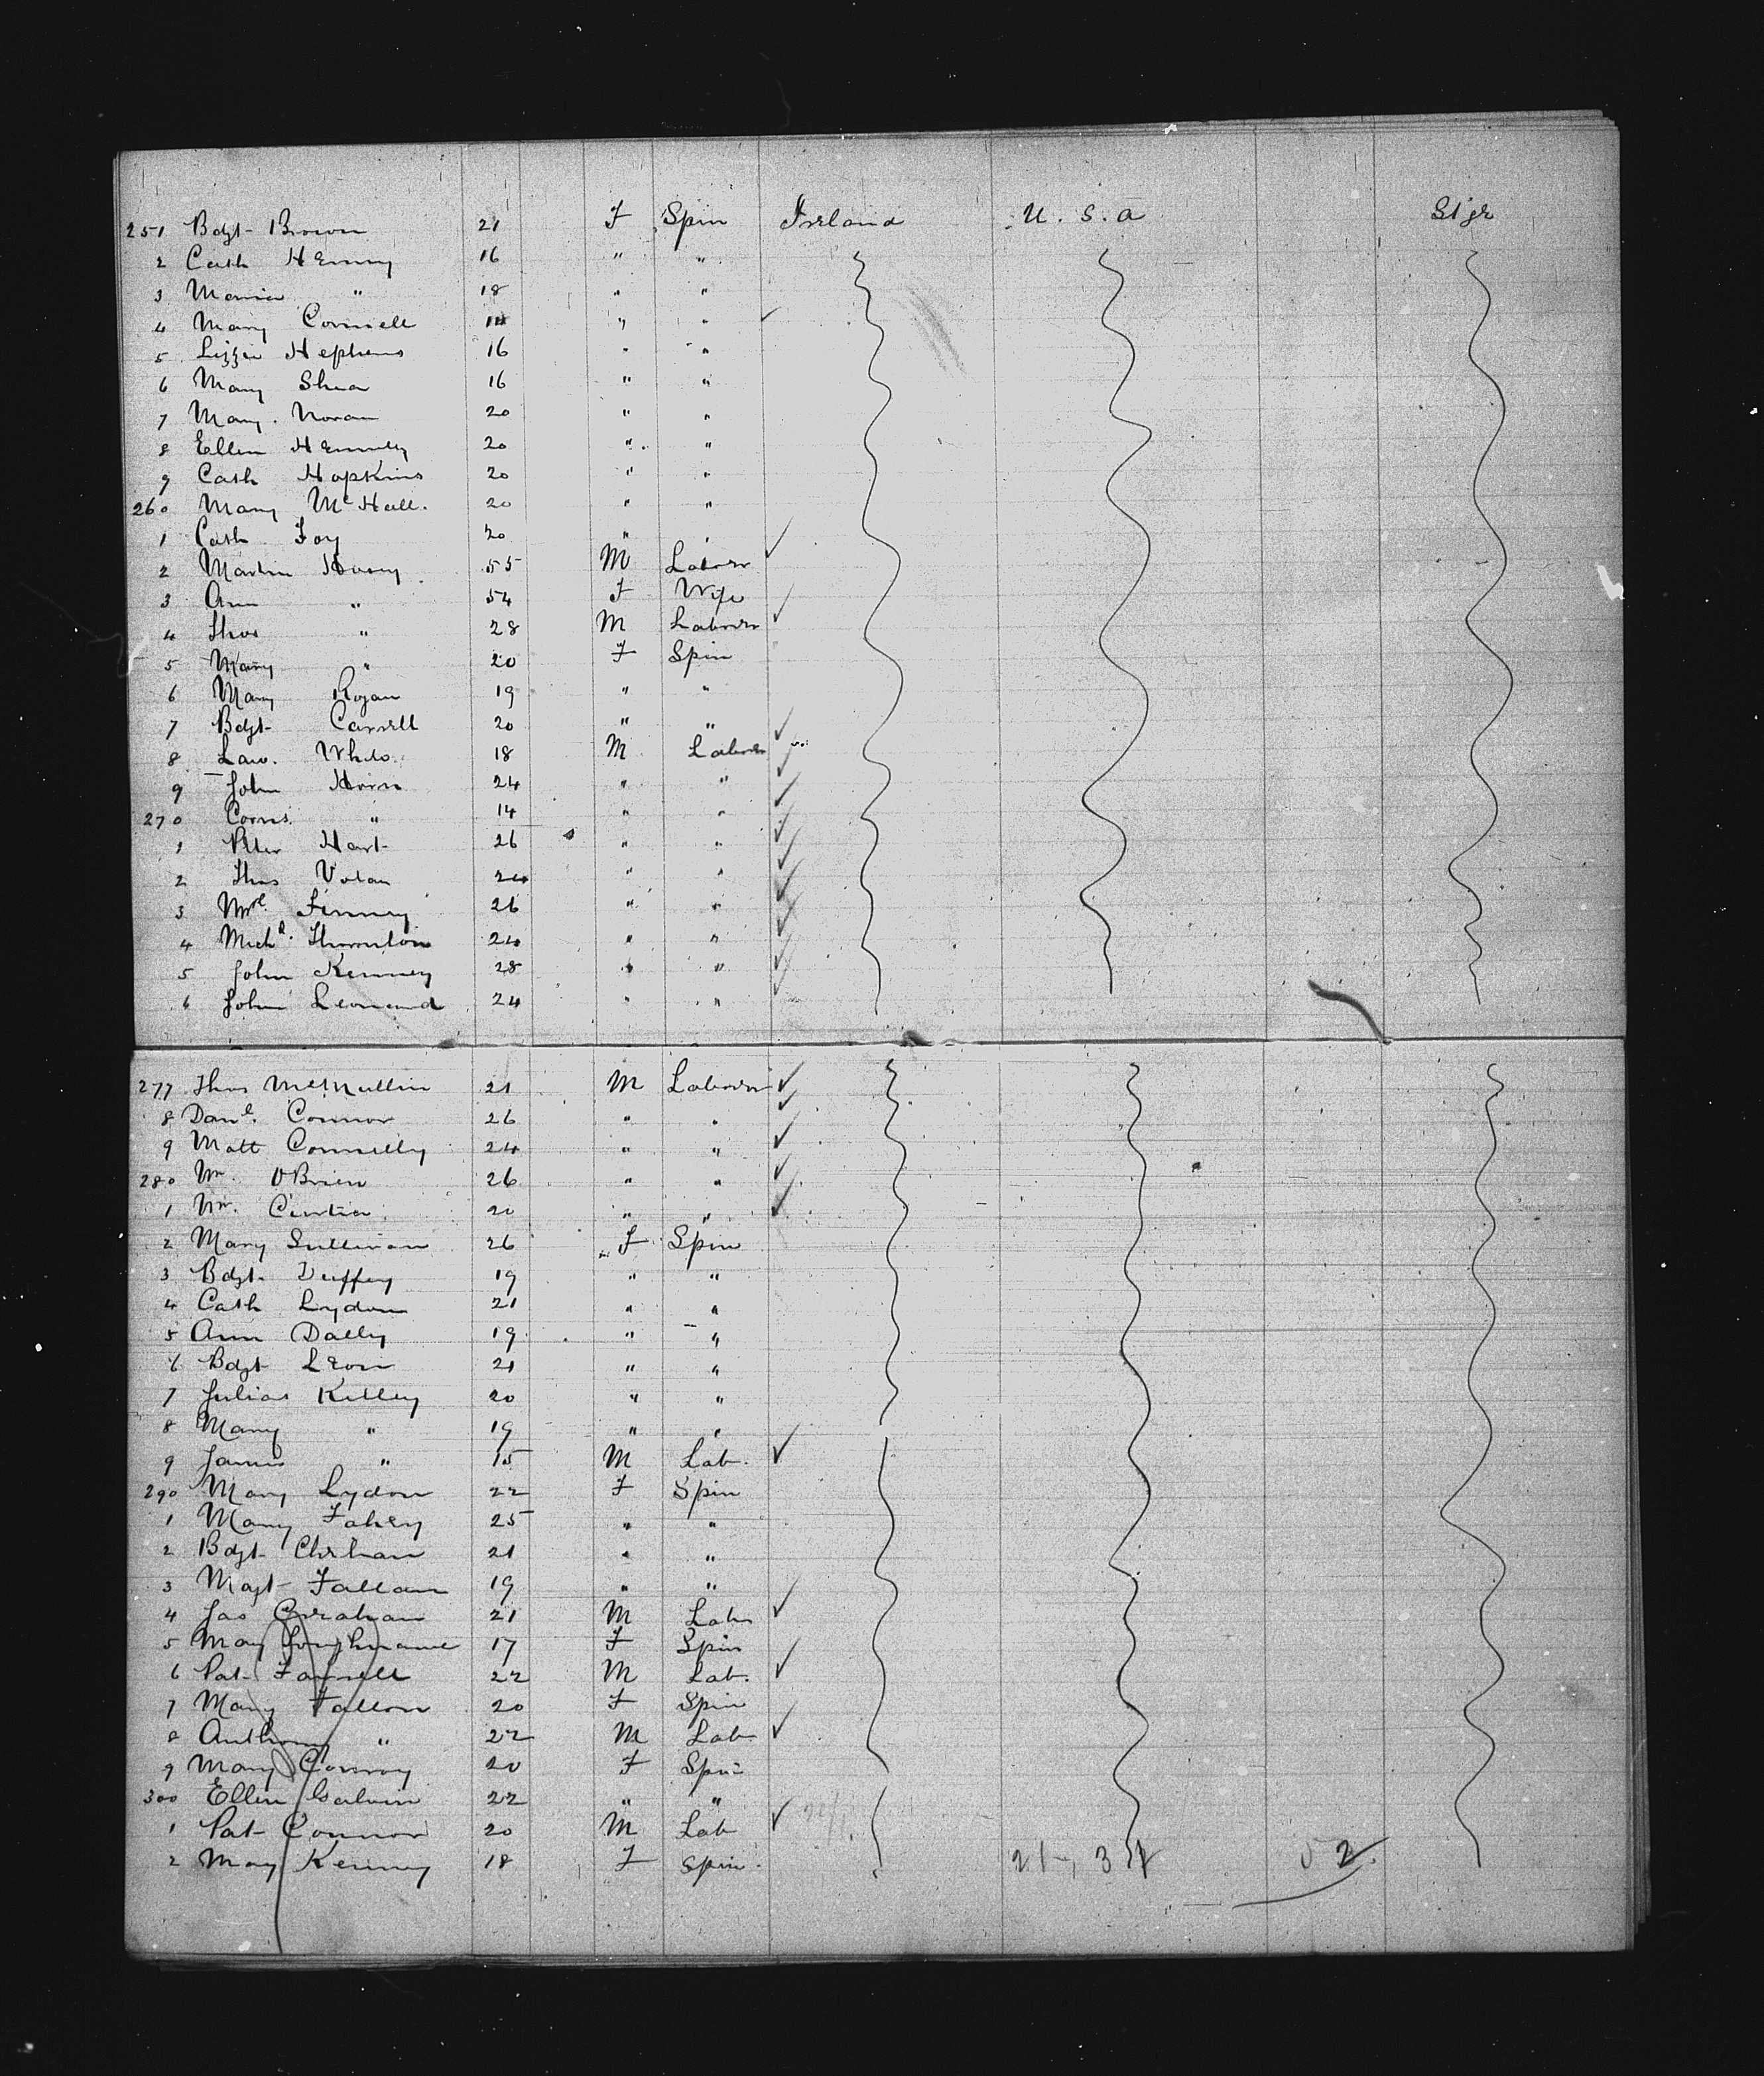 251 Bdgt Brown 21 F Spin Ireland U.S.A Stge
2 Cath Henny 16 " "
3 Maria " 18 " "
4 Mary Connell " "
5 Lizzie Hephens 16 " "
6 Mary Shea 16 " "
7 Mary Noran 20 " "
8 Ellen Hennely 20 " "
9 Cath Hopkins 20 " "
260 Mary McHall. 20 " "
1 Cath Foy 20 " "
2 Martin 55 M Laborer
3 Ann " 54 F Wife
4 Thos " 28 M Laborer
5 Mary " 20 F Spin
6 Mary Rogan 19 " "
7 Bdgt Carrell 20 " "
8 Law. 18 M Laborer
9 John 24 " "
270 Corns. " 14 " "
1 Peter Hart 26 " "
2 Thos Volan " "
3 Finney 26 " "
4 Michl. Thornton 24 " "
5 John Kenney 28 " "
6 John Leonard 24 " "
277 Thos McMullin 21 M Laborer
8 Danl. Connor 26 " "
9 Matt Connelly 24 " "
280 Wm. OBrien 26 " "
1 Wm. 20 " "
2 Mary Sullivan 26 F Spin
3 Bdgt. Duffey 19 " "
4 Cath Lydon 21 " "
5 Ann Dally 19 " "
6 Bdgt 21 " "
7 Julia Kelley 20 " "
8 Mary " 19 " "
9 James " 15 M Lab.
290 Mary Lydon 22 F Spin
1 Mary Fahey 25 " "
2 Bdgt 21 " "
3 Magt Fallan 19 " "
4 Jas 21 M Labr
5 Mary 17 F Spin
6 Pat Farrell 22 M Lab.
7 Mary Fallon 20 F Spin
8 Anthony " 22 M Lab
9 Mary Conroy 20 F Spin
300 Ellen Galvin 22 " "
1 Pat Connor 20 M Lab
2 Mary Kenney 18 F Spin.